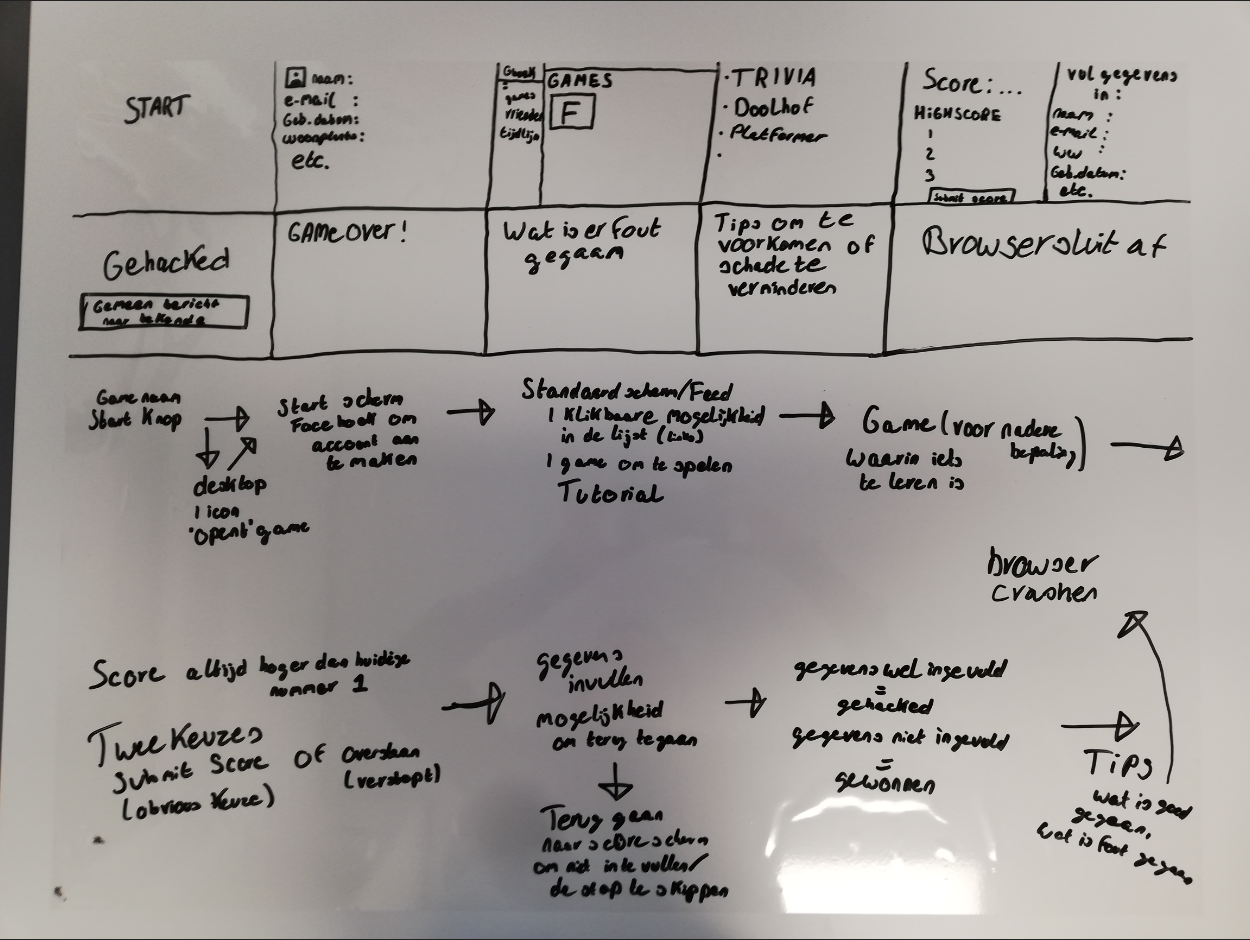 START
naam:
e-mail :
Geb. datum:
woonplaats:
etc.
games
vrienden
tijdlijn
GAMES
F
· TRIVIA
· DOOLHOF
· Platformer
·
Score:...
HIGHSCORE
1
2
3
Submit score
vul gegevens
in :
naam :
e-mail :
ww :
Geb.datum:
etc.
Gehacked
Gemeen bericht
naar bekende
GAMEOVER!
Wat is er fout
gegaan
Tips om te
voorkomen of
schade te
verminderen
Browser sluit af
Game naam
Start Knop
desktop
1 icon
"opent" game
Start scherm
Facebook om
account aan
te maken
Standaard scherm/Feed
1 Klikbaare mogelijkheid
in de lijst (links)
1 game om te spelen
Tutorial
Game (voor nadere
bepaling)
waarin iets
te leren is
Browser
crashen
Score altijd hoger dan huidige
nummer 1
Twee Keuzes
Submit Score of overslaan
(obvious Keuze) (verstopt)
gegevens
invullen
mogelijkheid
om terug te gaan
Terug gaan
naar score scherm
om niet in te vullen/
de stap te skippen
gegevens wel ingevuld
=
gehacked
gegevens niet ingevuld
=
gewonnen
Tips
wat is goed
gegaan,
wat is fout gegaan